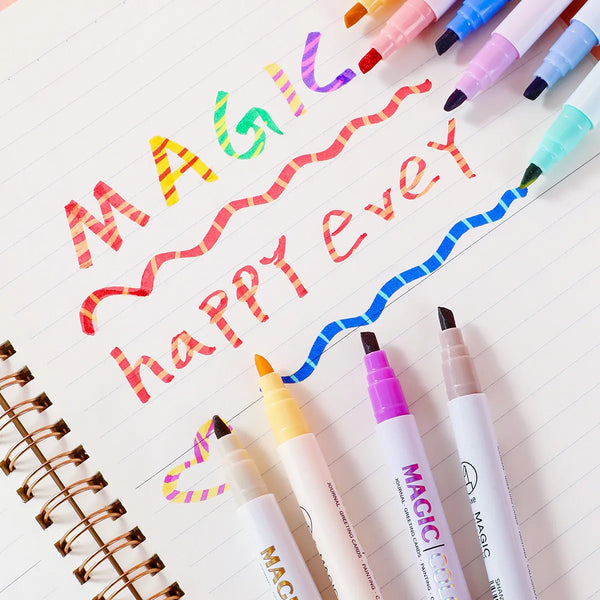 MAGIC
happy every
MAGIC
JOURNAL GREETING CARDS PAINTING
MAGIC COLO
JOURNAL GREETING CARDS PAINTING
MAGIC